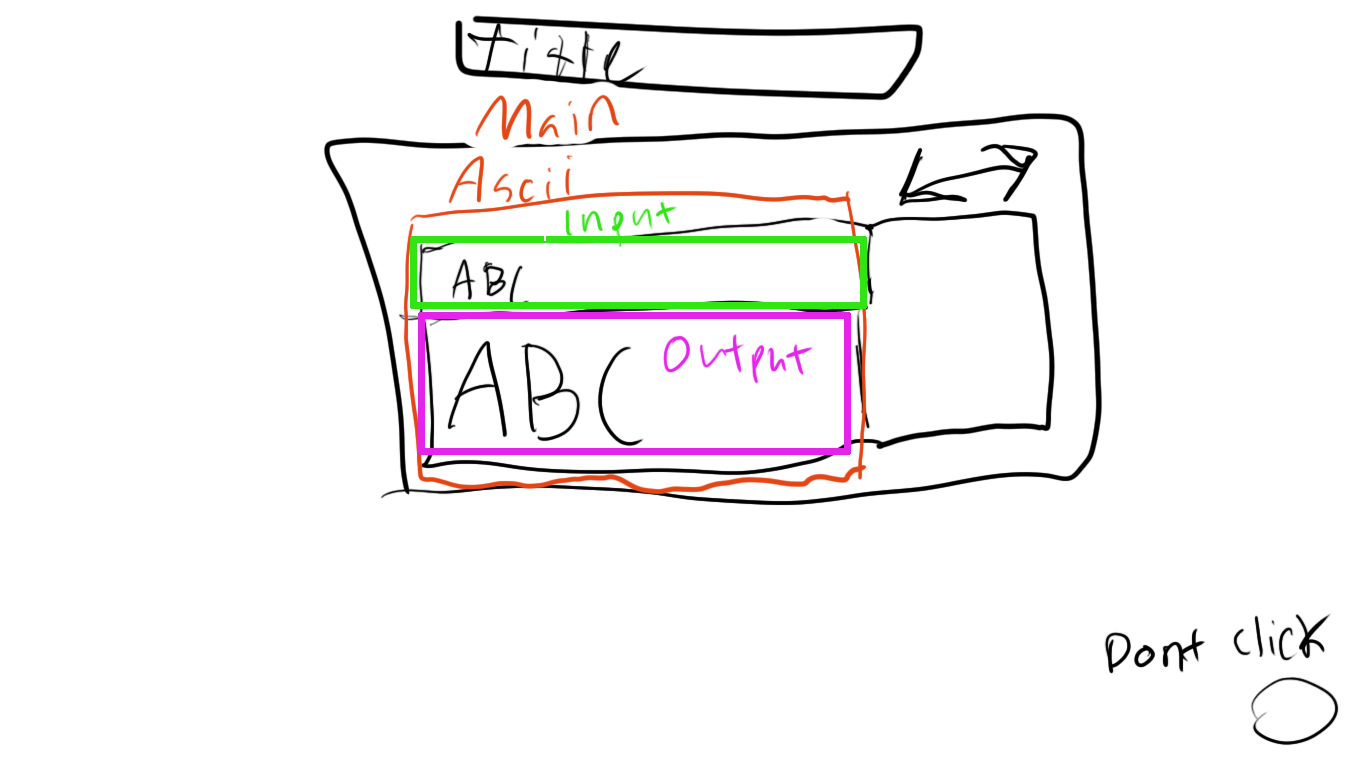 title
Main
Ascii
Input
ABC
ABC
Output
Dont click